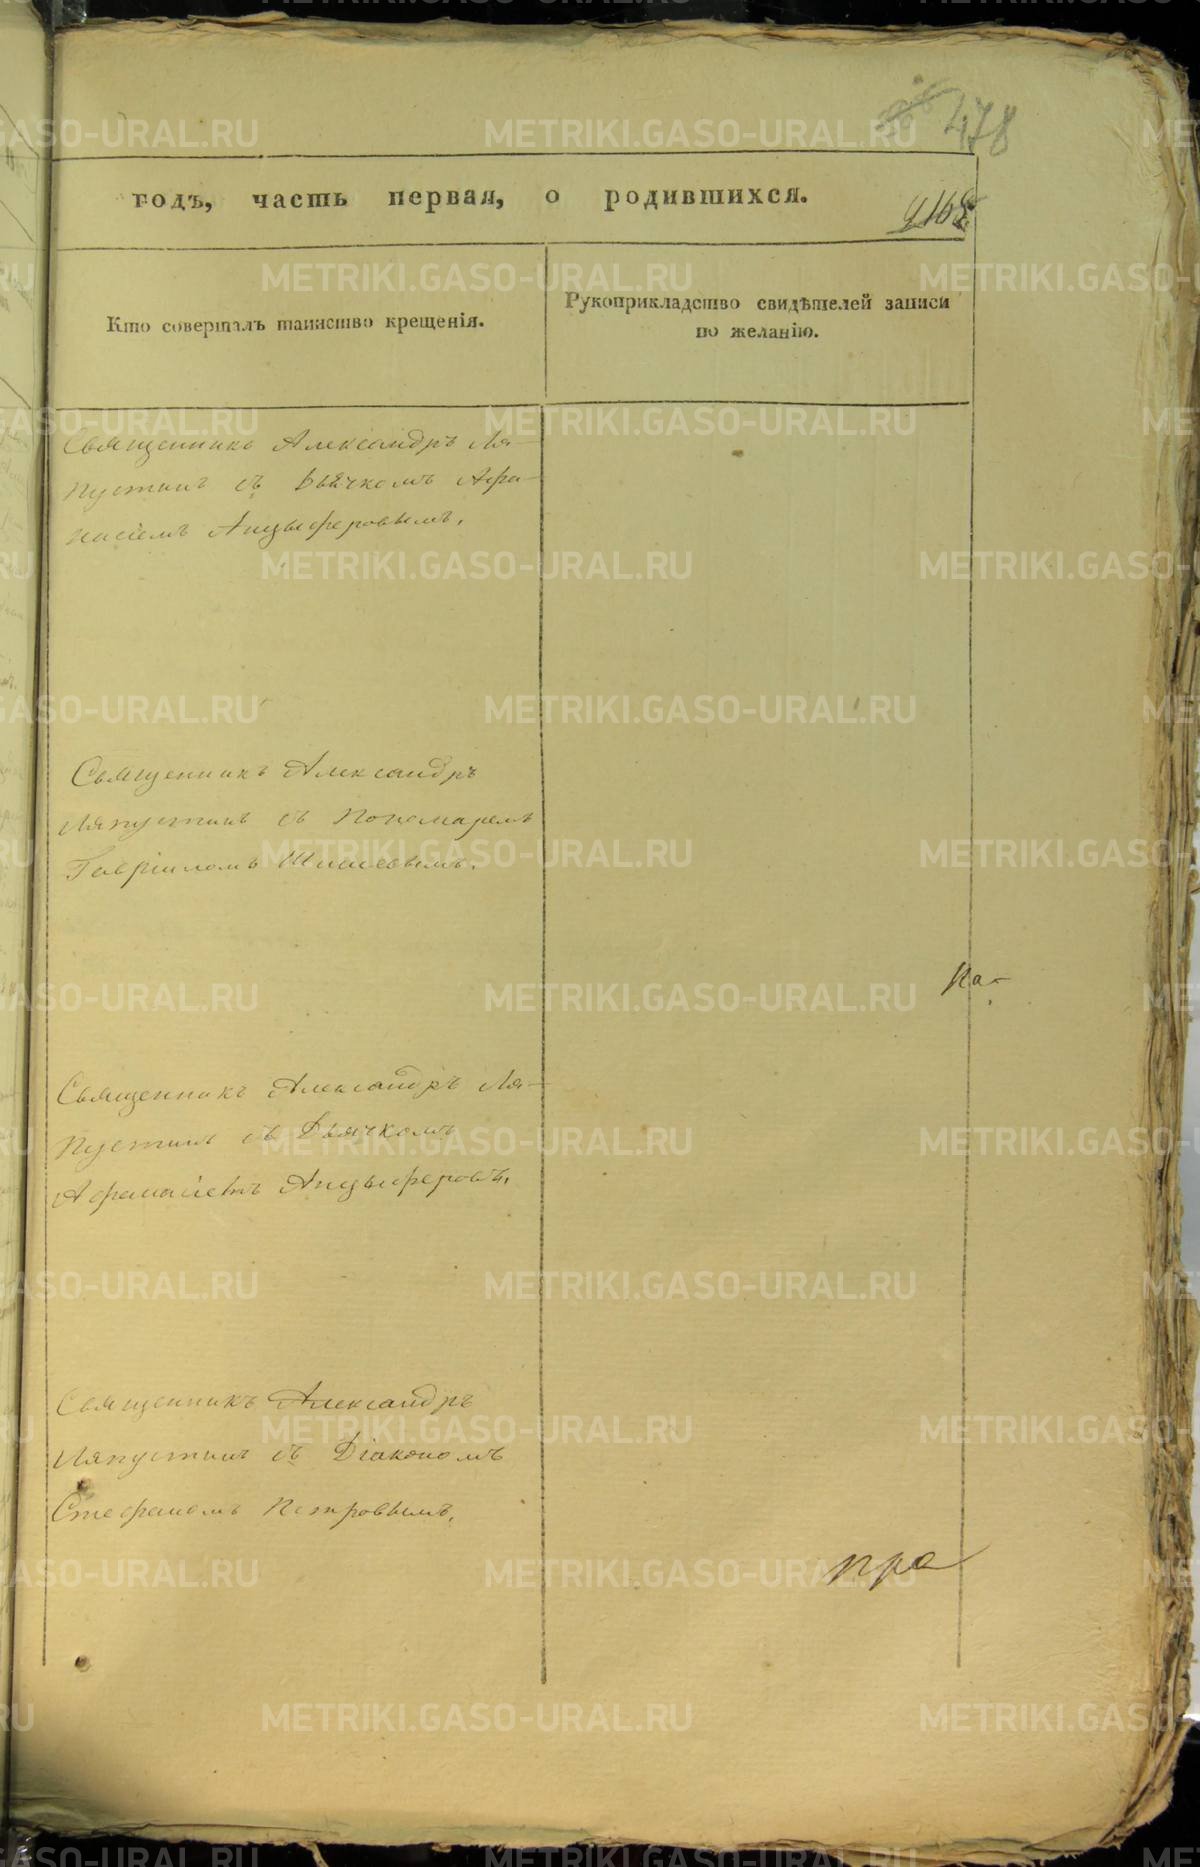 478
годъ, часть первая, о родившихся.
Кто совершалъ таинство крещенія.
Рукоприкладство свидѣтелей записи
по желанію.
Священникъ Александръ Ля-
пустинъ съ Дьячкомъ Афа-
насіемъ Анцыферовымъ.
Священникъ Александръ
Ляпустинъ съ Пономаремъ
Гавріиломъ
На-
Священникъ Александръ Ля-
пустинъ съ Дьячкомъ
Афанасіемъ Анцыферовъ.
Священникъ Александръ
Ляпустинъ съ Діакономъ
Стефаномъ Петровымъ.
пра
METRIKI.GASO-URAL.RU